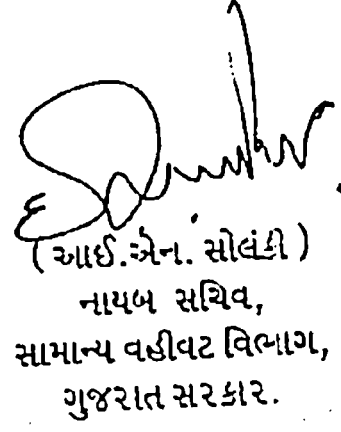 ( આઈ.એન. સોલંકી )
નાયબ સચિવ,
સામાન્ય વહીવટ વિભાગ,
ગુજરાત સરકાર.